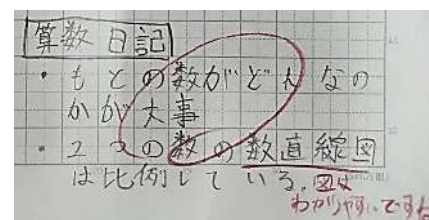 算数日記
・もとの数がどんなの
かが大事
・2つの数の数直線図
は比例している。図は
わかりやすいですね